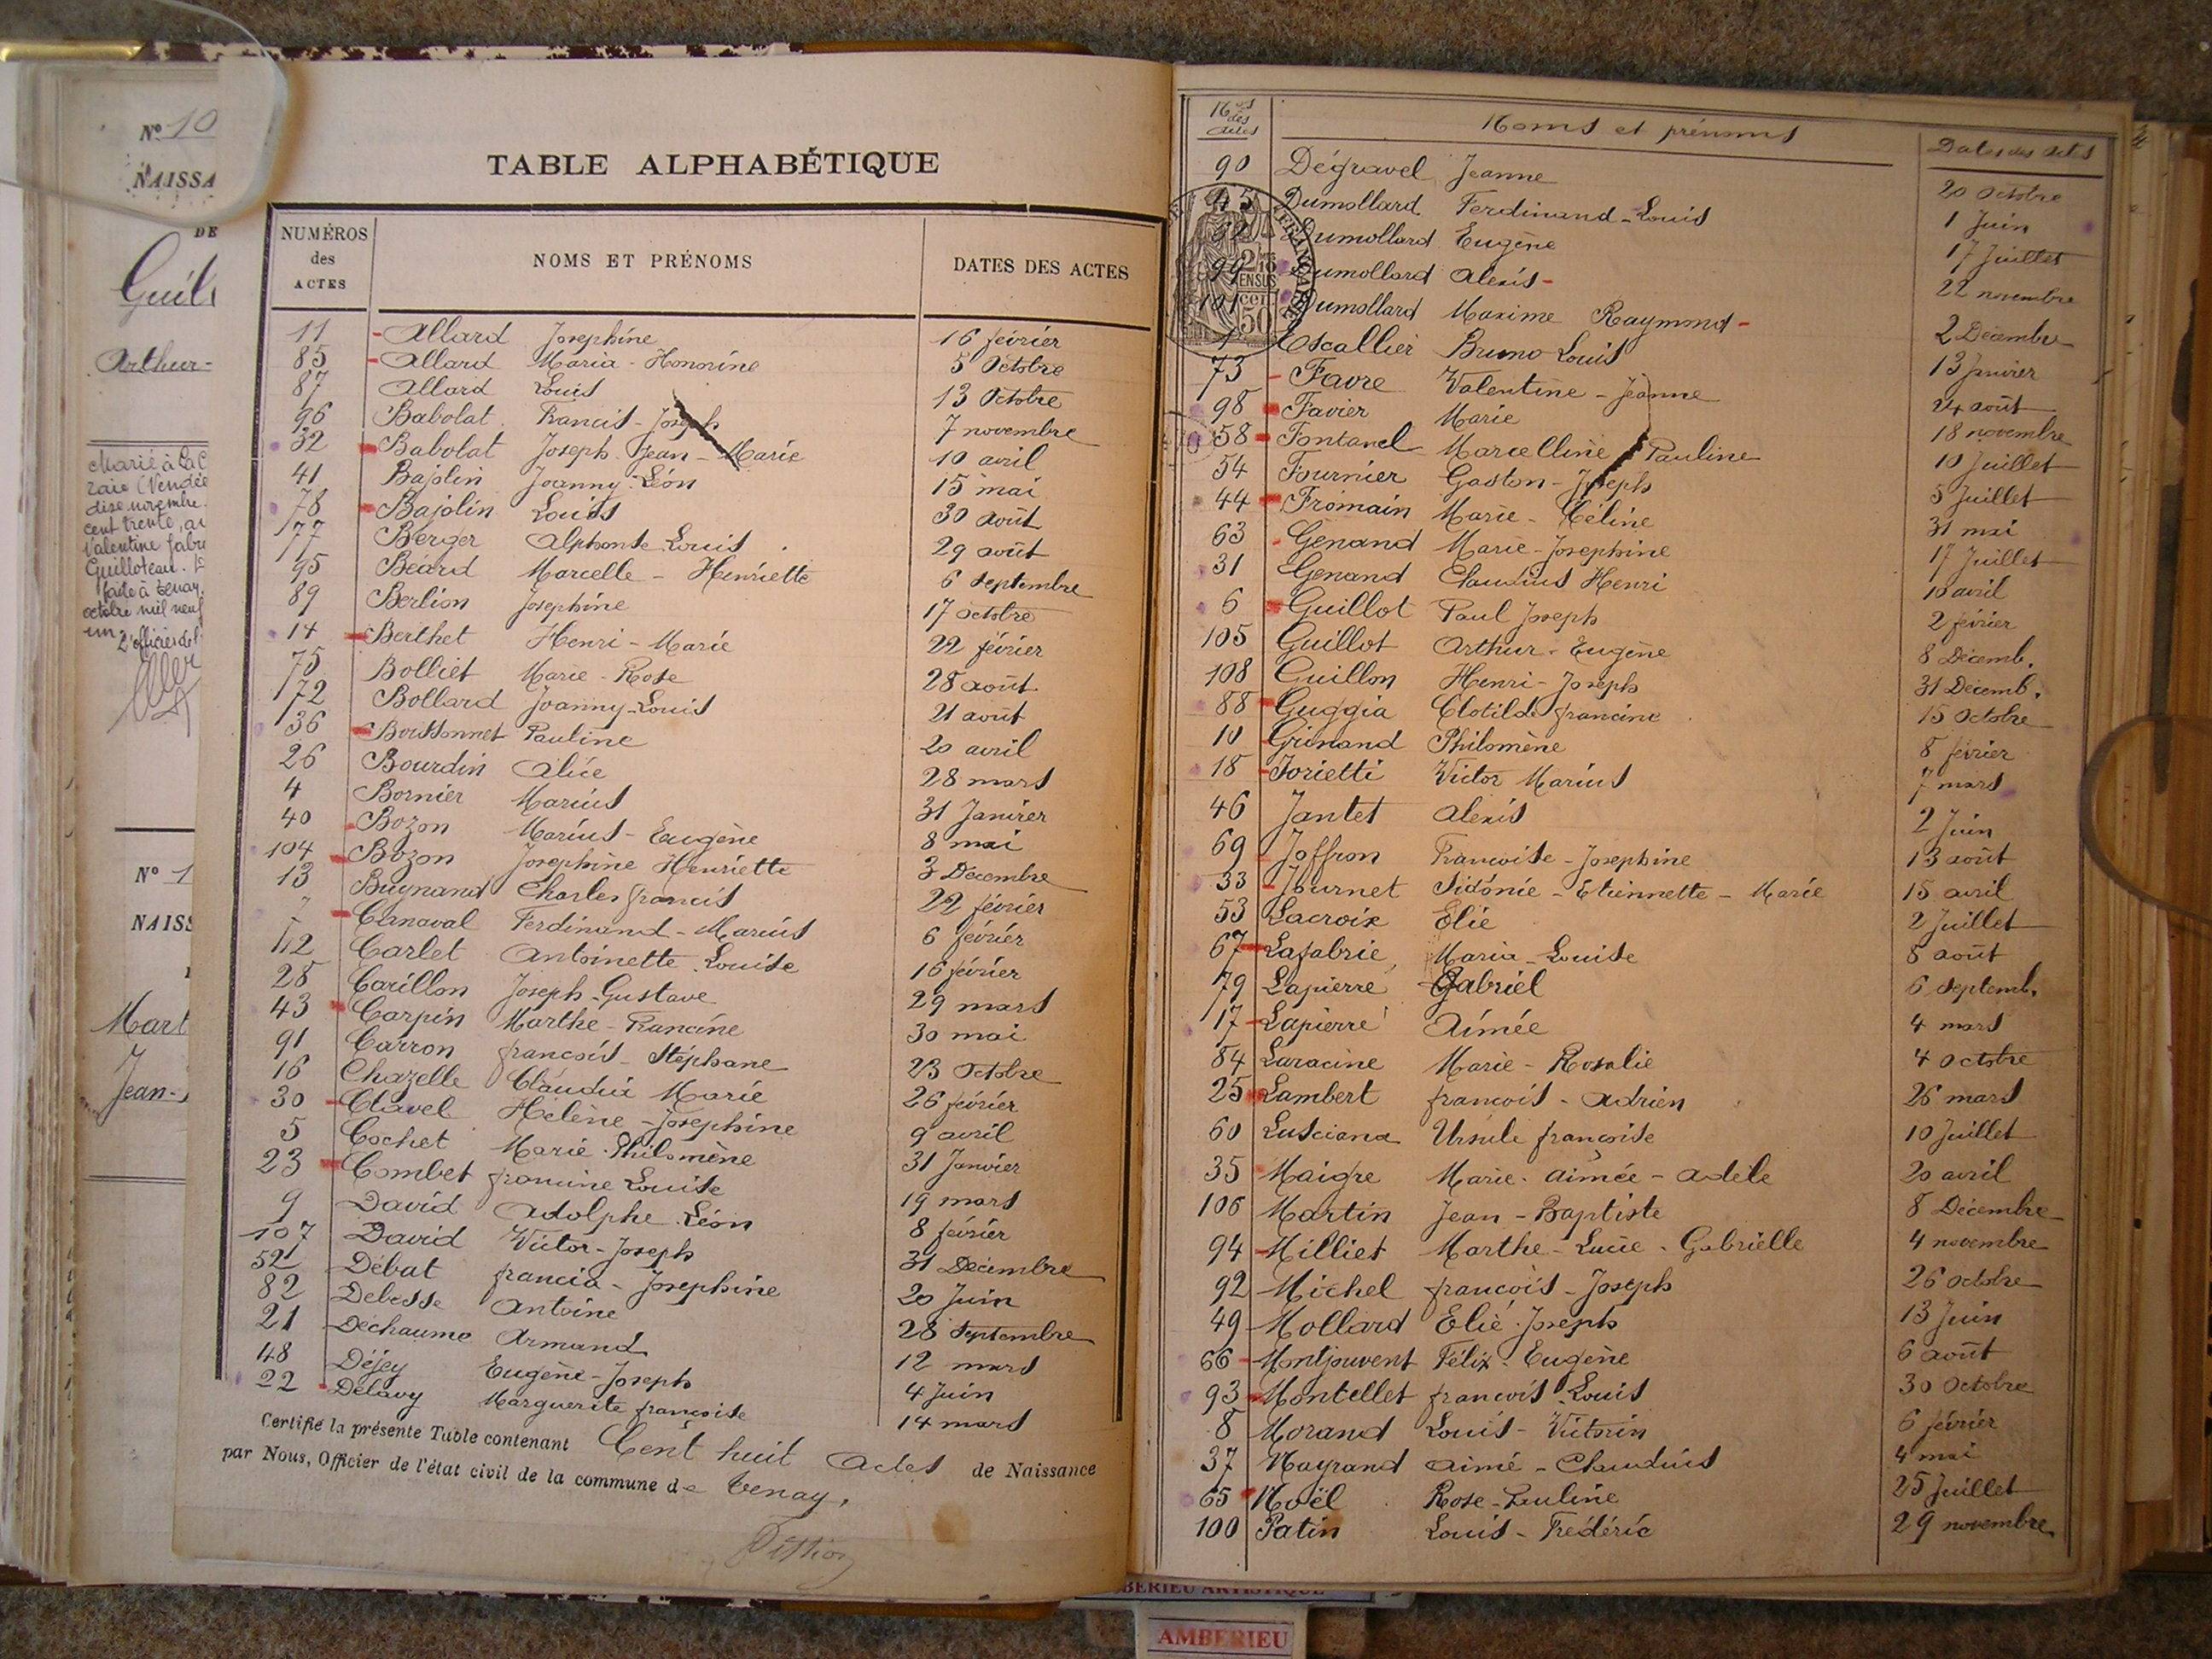 N° 10
NAISSA
DE
Guil
Arthur-
Marié à La C
raie (Vendée
dix novembre
cent trente, au
Valentine Fabr
Guilloteau.
faite à Tenay
octobre mil neuf
un
L'officier de l'
N° 1
NAISS
Mart
Jean-
TABLE ALPHABÉTIQUE
NUMÉROS des ACTES NOMS ET PRÉNOMS DATES DES ACTES
11 Allard Josephine 16 février
85 Allard Maria-Honorine 5 Octobre
87 Allard Louis 13 Octobre
96 Babolat Francis-Joseph 7 novembre
32 Babolat Joseph Jean-Marie 10 avril
41 Bajolin Joanny-Léon 15 mai
78 Bajolin Louis 30 août
77 Berger Alphonse Louis 29 août
95 Béard Marcelle-Henriette 6 septembre
89 Berlion Josephine 17 octobre
14 Berthet Henri-Marie 22 février
75 Bolliet Marie-Rose 28 août
72 Bollard Joanny-Louis 21 août
36 Boissonnet Pauline 20 avril
26 Bourdin Alice 28 mars
4 Bornier Marius 31 Janvier
40 Bozon Marius-Eugène 8 mai
104 Bozon Josephine Henriette 3 Décembre
13 Buynand Charles francis 22 février
7 Carnaval Ferdinand-Marius 6 février
12 Carlet Antoinette Louise 16 février
28 Carillon Joseph-Gustave 29 mars
43 Carpin Marthe-Francine 30 mai
91 Carron francois-Stéphane 23 Octobre
16 Chazelle Claudia Marie 26 février
30 Clavel Helène-Josephine 9 avril
5 Cochet Marie-Philomène 31 Janvier
23 Combet francine Louise 19 mars
9 David Adolphe Léon 8 février
107 David Victor-Joseph 31 Décembre
52 Débat francia-Josephine 20 Juin
82 Debesse Antoine 28 Septembre
21 Dechaume Armand 12 mars
48 Déjey Eugène-Joseph 4 Juin
22 Delavy Marguerite françoise 14 mars
Certifié la présente Table contenant Cent huit Actes de Naissance
par Nous, Officier de l'état civil de la commune de Tenay,
Nos des actes Noms et prénoms Dates des actes
90 Dégravel Jeanne 20 octobre
45 Dumollard Ferdinand-Louis 1 Juin
62 Dumollard Eugène 17 Juillet
99 Dumollard Alexis- 22 novembre
101 Dumollard Maxime Raymond- 2 Décembre
1 Escallier Bruno Louis 13 Janvier
73 Favre Valentine-Jeanne 24 août
98 Favier Marie 18 novembre
58 Fontanel Marcelline Pauline 10 Juillet
54 Fournier Gaston-Joseph 5 Juillet
44 Fromain Marie-Céline 31 mai
63 Genand Marie-Josephine 17 Juillet
31 Genand Claudius Henri 10 avril
6 Guillot Paul Joseph 2 février
105 Guillot Arthur-Eugène 8 Décemb.
108 Guillon Henri-Joseph 31 Décemb.
88 Guggia Clotilde francine 15 Octobre
10 Grinand Philomène 8 février
18 Iorietti Victor Marius 7 mars
46 Jantet Alexis 2 Juin
69 Joffron Françoise-Josephine 13 août
33 Journet Sidonie-Etiennette-Marie 15 avril
53 Lacroix Elie 2 Juillet
67 Lafabrie Maria-Louise 8 août
79 Lapierre Gabriel 6 Septemb.
17 Lapierre Aimée 4 mars
84 Laracine Marie-Rosalie 4 octobre
25 Lambert francois-Adrien 26 mars
60 Lusciana Ursule françoise 10 Juillet
35 Maigre Marie-aimée-adèle 20 avril
106 Martin Jean-Baptiste 8 Décembre
94 Milliet Marthe-Lucie-Gabrielle 4 novembre
92 Michel francois-Joseph 26 octobre
49 Mollard Elie Joseph 13 Juin
66 Montjouvent Félix-Eugène 6 août
93 Montellet francois Louis 30 Octobre
8 Morand Louis-Victorin 6 février
37 Nayrand aimé-Claudius 4 mai
65 Noël Rose-Pauline 25 Juillet
100 Patin Louis-Frédéric 29 novembre
AMBERIEU